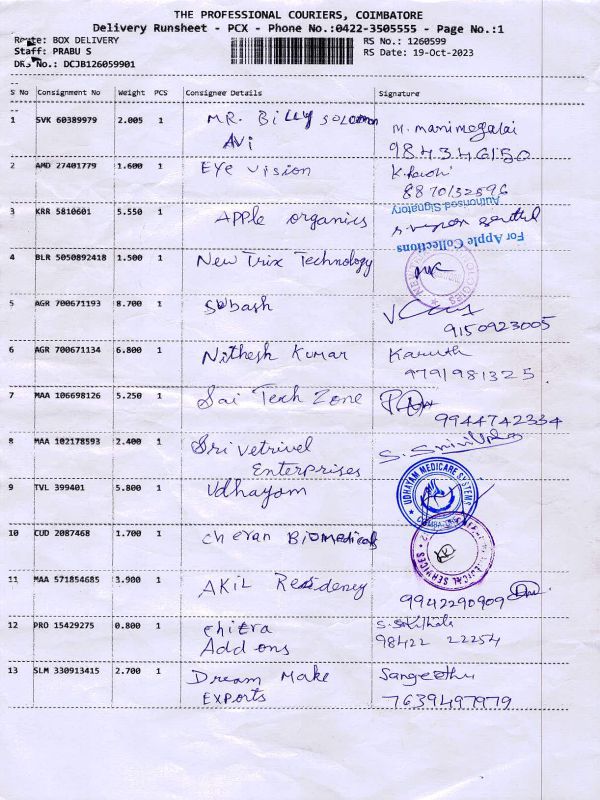 THE PROFESSIONAL COURIERS, COIMBATORE
Delivery Runsheet - PCX - Phone No.:0422-3505555 - Page No.:1
Route: BOX DELIVERY RS No.: 1260599
Staff: PRABU S RS Date: 19-Oct-2023
DRS No.: DCJB126059901
S No Consignment No Weight PCS Consignee Details Signature
1 SVK 60389979 2.005 1 MR. Billy Solomon M. Manimegalai
Avi 984346150
2 AMD 27401779 1.600 1 Eye Vision
8870132596
Authorised Signatory
3 KRR 5810601 5.550 1 APPle organics
For Apple Collections
4 BLR 5050892418 1.500 1 New Trix Technology
5 AGR 700671193 8.700 1 Subash
9150923005
6 AGR 700671134 6.800 1 Nithesh Kumar
9791981325.
7 MAA 106698126 5.250 1 Sai Tech Zone
9944742334
8 MAA 102178593 2.400 1 Sri Vetrivel
Enterprises
9 TVL 399401 5.800 1 Udhayam UDHAYAM MEDICARE SYSTEMS
10 CUD 2087468 1.700 1 cheran Biomedicals
11 MAA 571854685 3.900 1 AKIL Residency
9942290909
12 PRO 15429275 0.800 1 chitra
Add ons 98422 22254
13 SLM 330913415 2.700 1 Dream Make Sangeetha
Exports 7639497979